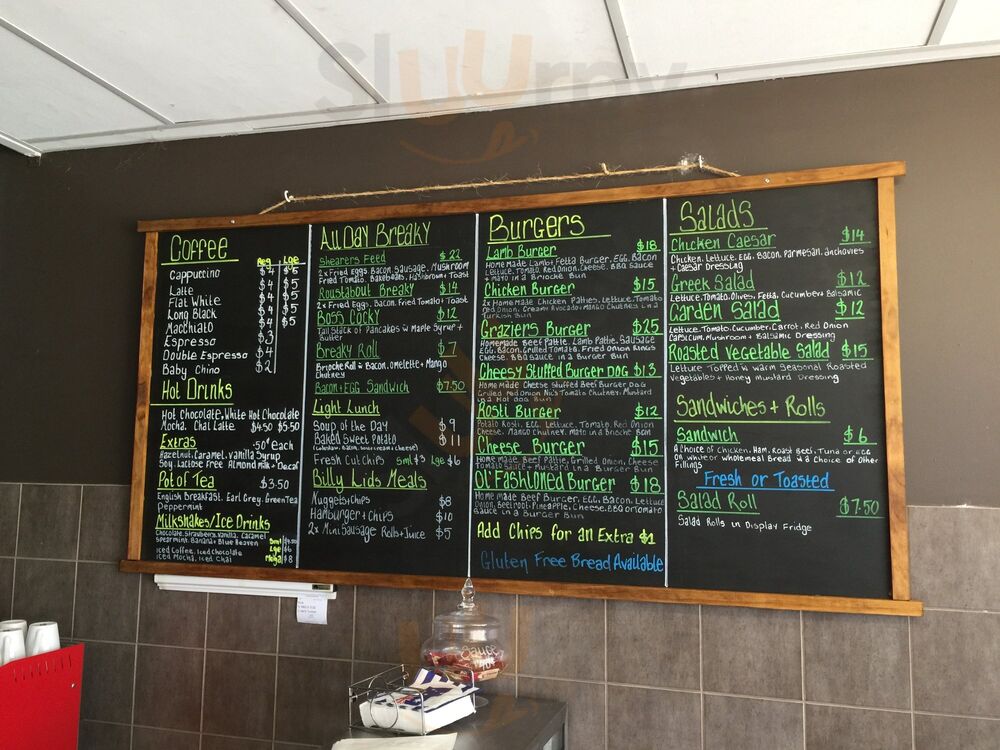 Sluurpy
Coffee
Reg Lge
Cappuccino $4 $5
Latte $4 $5
Flat White $4 $5
Long Black $4 $5
Macchiato $4 $5
Espresso $3
Double Espresso $4
Baby Chino $2
Hot Drinks
Hot Chocolate, White Hot Chocolate
Mocha, Chai Latte $4.50 $5.50
Extras .50¢ each
Hazelnut, Caramel, Vanilla Syrup
Soy, Lactose Free Almond Milk + Decaf
Pot of Tea $3.50
English Breakfast, Earl Grey, Green Tea
Peppermint
Milkshakes/Ice Drinks
Chocolate, Strawberry, Vanilla, Caramel
Spearmint, Banana + Blue Heaven
Iced Coffee, Iced Chocolate
Iced Mocha, Iced Chai
Sml $4.50
Lge $6
Mega $8
All Day Breaky
Shearers Feed $22
2x Fried Eggs, Bacon, Sausage, Mushroom
Fried Tomato, Bakebeans, Hashbrown + Toast
Roustabout Breaky $14
2x Fried Eggs, Bacon, Fried Tomato + Toast
Boss Cocky $12
Tall Stack of Pancakes w Maple Syrup +
Butter
Breaky Roll $7
Brioche Roll w Bacon, Omelette + Mango
Chutney
Bacon + Egg Sandwich $7.50
Light Lunch
Soup of the Day $9
Baked Sweet Potato $11
(Coleslaw, Bacon, Sour Cream + Cheese)
Fresh Cut Chips Sml $3 Lge $6
Billy Lids Meals
Nuggets + Chips $8
Hamburger + Chips $10
2x Mini Sausage Rolls + Juice $5
Burgers
Lamb Burger $18
Home Made Lamb + Fetta Burger, Egg, Bacon
Lettuce, Tomato, Red Onion, Cheese, BBQ Sauce
+ Mayo in a Brioche Bun
Chicken Burger $15
2x Home Made Chicken Patties, Lettuce, Tomato
Red Onion, Creamy Avocado + Mango Chutney in a
Turkish Bun
Graziers Burger $25
Homemade Beef Pattie, Lamb Pattie, Sausage
Egg, Bacon, Grilled Tomato, Fried Onion Rings
Cheese, BBQ Sauce in a Burger Bun
Cheesy Stuffed Burger Dog $13
Home Made Cheese Stuffed Beef Burger Dog
Grilled Red Onion, Nic's Tomato Chutney, Mustard
in a Hot Dog Bun
Rosti Burger $12
Potato Rosti, Egg, Lettuce, Tomato, Red Onion
Cheese, Mango Chutney, Mayo in a Brioche Bun
Cheese Burger $15
Home Made Beef Pattie, Grilled Onion, Cheese
Tomato Sauce + Mustard in a Burger Bun
Ol' Fashioned Burger $18
Home Made Beef Burger, Egg, Bacon, Lettuce
Onion, Beetroot, Pineapple, Cheese, BBQ or Tomato
Sauce in a Burger Bun
Add Chips for an Extra $1
Gluten Free Bread Available
Salads
Chicken Caesar $14
Chicken, Lettuce, Egg, Bacon, Parmesan, Anchovies
+ Caesar Dressing
Greek Salad $12
Lettuce, Tomato, Olives, Fetta, Cucumber + Balsamic
Garden Salad $12
Lettuce, Tomato, Cucumber, Carrot, Red Onion
Capsicum, Mushroom + Balsamic Dressing
Roasted Vegetable Salad $15
Lettuce Topped w Warm Seasonal Roasted
Vegetables + Honey Mustard Dressing
Sandwiches + Rolls
Sandwich $6
A Choice of Chicken, Ham, Roast Beef, Tuna or Egg
on White or Wholemeal Bread w a Choice of Other
Fillings
Fresh or Toasted
Salad Roll $7.50
Salad Rolls in Display Fridge
Sauce
40¢